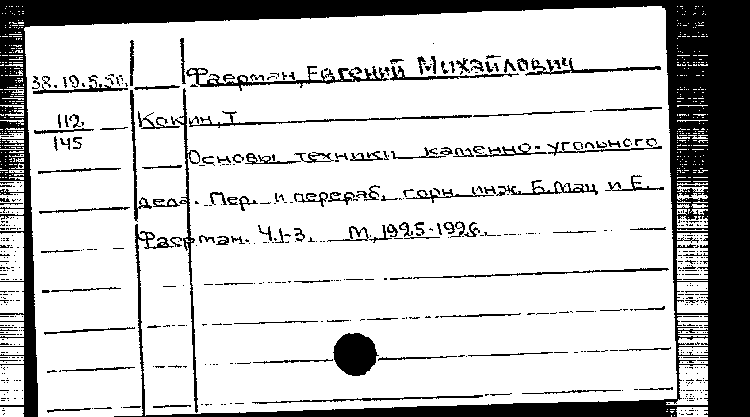 38.19.5.50. Фаерман, Евгений Михайлович
112 Кокин, Т.
145 Основы техники каменно-угольного
дела. Пер. и перераб. горн. инж. Б.Мац и Е.
Фаерман. Ч.1-3. М., 1925-1926.